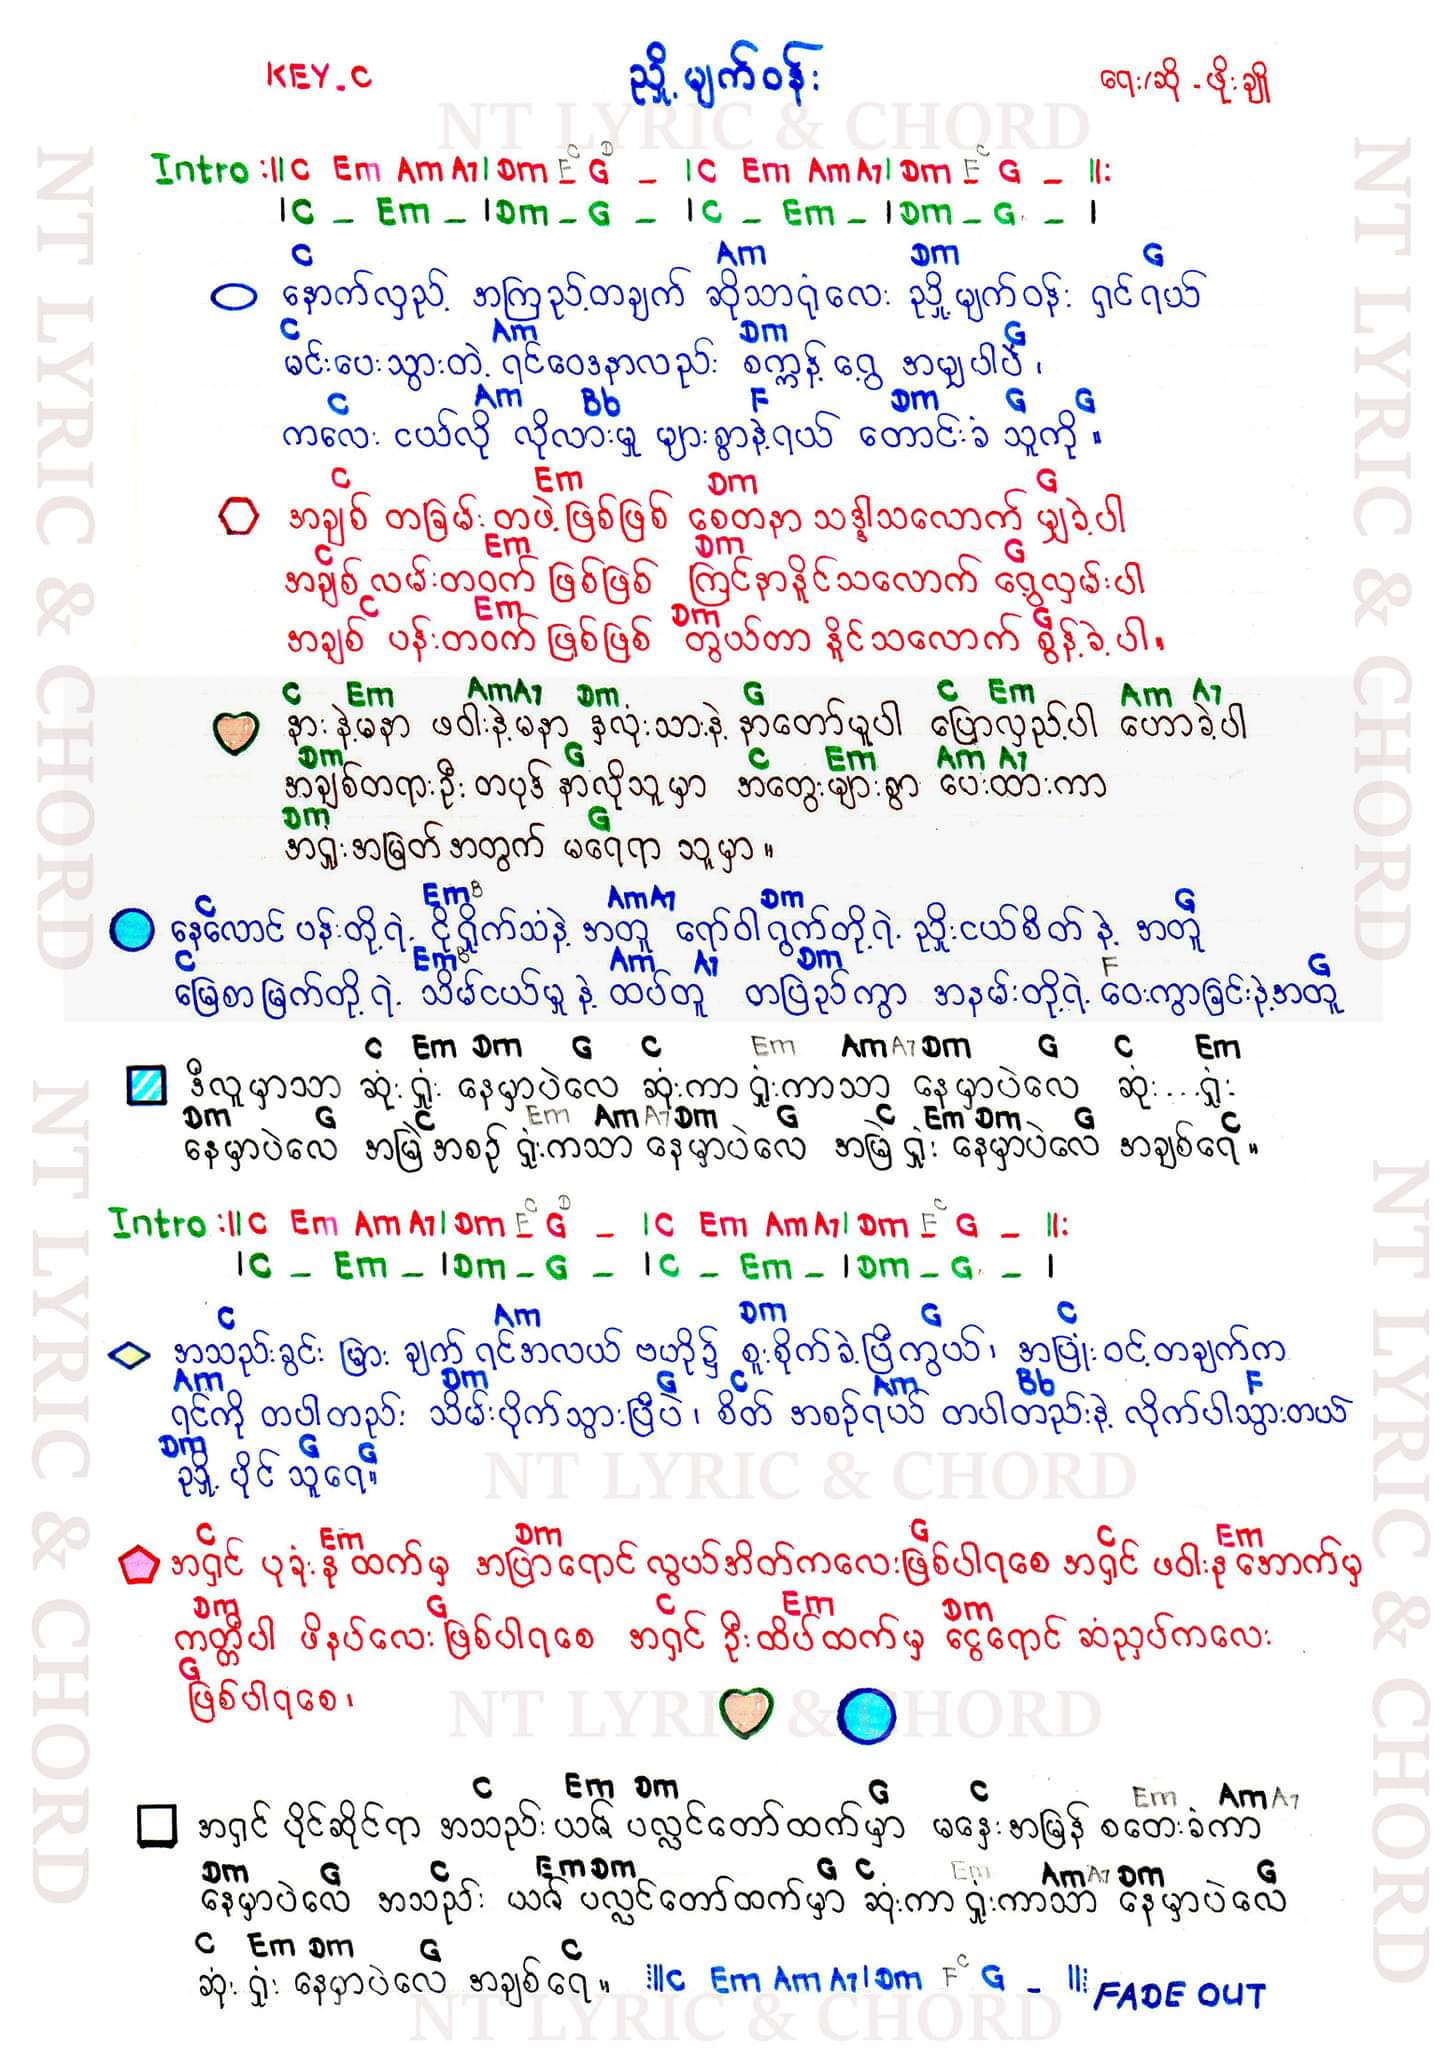 KEY_C
ညှို့မျက်ဝန်း
ရေး/ဆို - ဖိုးချို
NT LYRIC & CHORD
Intro :||C Em Am A7| Dm F C G D _ |C Em Am A7| Dm F C G _ ||:
|C _ Em _ |Dm _ G _ |C _ Em _ |Dm _ G _ |
C Am Dm G
နောက်လှည့် အကြည့်တချက် ဆိုသာရုံလေး ညှို့မျက်ဝန်း ရှင်ရယ်
C Am Dm G
မင်းပေးသွားတဲ့ ရင်ဝေဒနာလည်း စက္ကန့်ရွေ့ အမျှပါပဲ၊
C Am Bb F Dm G G
ကလေး ငယ်လို လိုလားမှု များစွာနဲ့ရယ် တောင်းခံ သူကို ။
C Em Dm G
အချစ် တခြမ်းတဖဲ့ဖြစ်ဖြစ် စေတနာ သဒ္ဓါသလောက် မျှခဲ့ပါ
C Em Dm G
အချစ်လမ်းတဝက် ဖြစ်ဖြစ် ကြင်နာနိုင်သလောက် ရွေ့လှမ်းပါ
C Em Dm G
အချစ် ပန်းတဝက်ဖြစ်ဖြစ် တွယ်တာ နိုင်သလောက် စွန့်ခဲ့ပါ။
C Em Am A7 Dm G C Em Am A7
နားနဲ့မနာ ဖဝါးနဲ့မနာ နှလုံးသားနဲ့ နာတော်မူပါ ပြောလှည့်ပါ ဟောခဲ့ပါ
Dm G C Em Am A7
အချစ်တရားဦး တပုဒ် နာလိုသူမှာ အတွေးများစွာ ပေးထားကာ
Dm G
အရှုံးအမြတ်အတွက် မရေရာ သူမှာ ။
C Em B Am A7 Dm G
နေလောင် ပန်းတို့ရဲ့ ငိုရှိုက်သံနဲ့ အတူ ရော်ဝါရွက်တို့ရဲ့ ညှိုးငယ်စိတ် နဲ့ အတူ
C Em B Am A7 Dm F G
မြေစာမြက်တို့ရဲ့ သိမ်ငယ်မှု နဲ့ ထပ်တူ တဖြည်ကွာ အနမ်းတို့ရဲ့ ဝေးကွာခြင်းနဲ့အတူ
C Em Dm G C Em Am A7 Dm G C Em
ဒီလူမှာသာ ဆုံးရှုံး နေမှာပဲလေ ဆုံးကာ ရှုံးကာသာ နေမှာပဲလေ ဆုံး....ရှုံး
Dm G C Em Am A7 Dm G C Em Dm G C
နေမှာပဲလေ အမြဲအစဉ် ရှုံးကသာ နေမှာပဲလေ အမြဲ ရှုံး နေမှာပဲလေ အချစ်ရေ။
Intro :||C Em Am A7| Dm F C G D _ |C Em Am A7| Dm F C G _ ||:
|C _ Em _ |Dm _ G _ |C _ Em _ |Dm _ G _ |
C Am Dm G C
အသည်းခွင်း မြား ချက် ရင်အလယ် ဗဟို၌ စူးစိုက်ခဲ့ပြီကွယ်၊ အပြုံးဝင့်တချက်က
Am Dm G C Am Bb F
ရင်ကို တပါတည်း သိမ်းပိုက်သွားပြီပဲ၊ စိတ် အစဉ်ရယ် တပါတည်းနဲ့ လိုက်ပါသွားတယ်
Dm G G
ညှို့ ပိုင် သူရေ။
C Em Dm G C Em
အရှင် ပုခုံးနု ထက်မှ အပြာရောင် လွယ်အိတ်ကလေးဖြစ်ပါရစေ အရှင် ဖဝါးနု အောက်မှ
Dm G C Em Dm
ကတ္တီပါ ဖိနပ်လေး ဖြစ်ပါရစေ အရှင် ဦးထိပ်ထက်မှ ငွေရောင် ဆံညှပ်ကလေး
G
ဖြစ်ပါရစေ၊
C Em Dm G C Em Am A7
အရှင် ပိုင်ဆိုင်ရာ အသည်းယဇ် ပလ္လင်တော်ထက်မှာ မနှေးအမြန် စတေးခံကာ
Dm G C Em Dm G C Em Am A7 Dm G
နေမှာပဲလေ အသည်း ယဇ် ပလ္လင်တော်ထက်မှာ ဆုံးကာ ရှုံးကာသာ နေမှာပဲလေ
C Em Dm G C
ဆုံး ရှုံး နေမှာပဲလေ အချစ်ရေ။ ||C Em Am A7| Dm F C G _ || FADE OUT